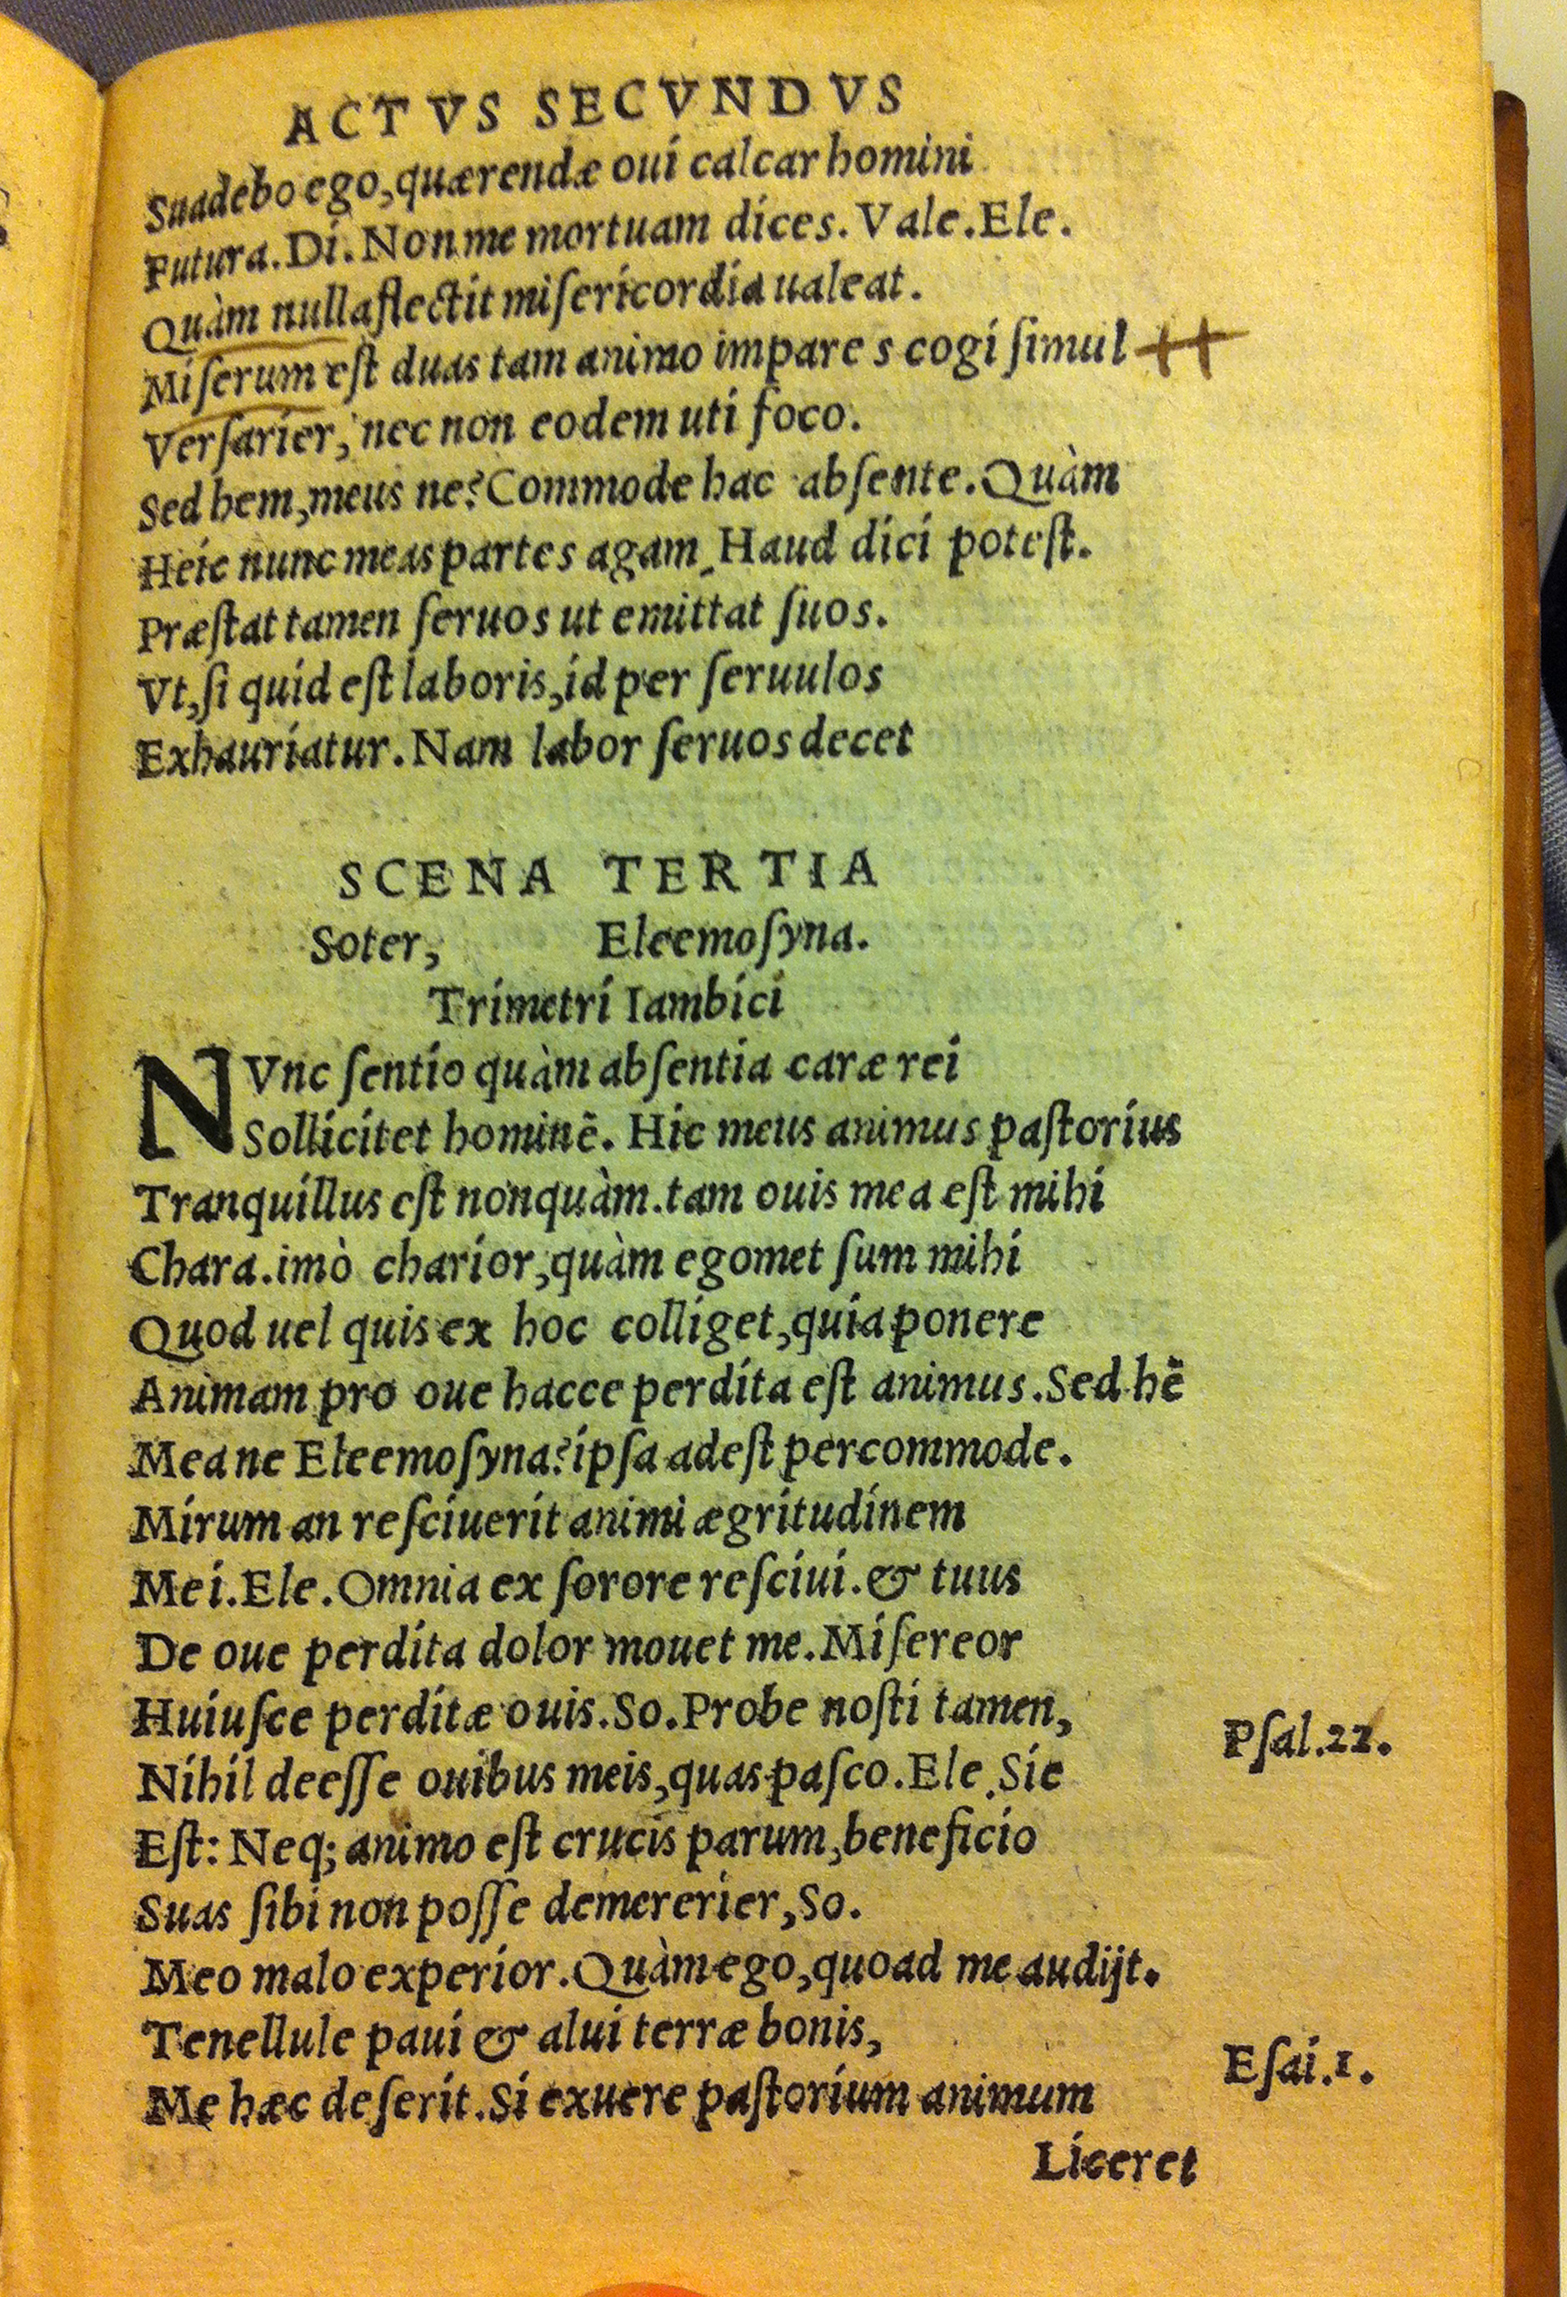 ACTVS SECVNDVS
Suadebo ego, quærendæ oui calcar homini
Futura. Di. Non me mortuam dices. Vale. Ele.
Quàm nulla flectit miſericordia ualeat.
Miſerum eſt duas tam animo impares cogi ſimul
Verſarier, nec non eodem uti foco.
Sed hem, meus ne? Commode hac abſente. Quàm
Heic nunc meas partes agam, Haud dici poteſt.
Præſtat tamen ſeruos ut emittat ſuos.
Vt, ſi quid eſt laboris, id per ſeruulos
Exhauriatur. Nam labor ſeruos decet
SCENA TERTIA
Soter, Eleemoſyna.
Trimetri Iambici
NVnc ſentio quàm abſentia caræ rei
Sollicitet hominē. Hic meus animus paſtorius
Tranquillus eſt nonquàm. tam ouis mea eſt mihi
Chara. imò charior, quàm egomet ſum mihi
Quod uel quis ex hoc colliget, quia ponere
Animam pro oue hacce perdita eſt animus. Sed hē
Meane Eleemoſyna? ipſa adeſt percommode.
Mirum an reſciuerit animi ægritudinem
Mei. Ele. Omnia ex ſorore reſciui. & tuus
De oue perdita dolor mouet me. Miſereor
Huiuſce perditæ ouis. So. Probe noſti tamen,
Nihil deeſſe ouibus meis, quas paſco. Ele. Sic
Psal.22.
Eſt: Neq; animo eſt crucis parum, beneficio
Suas ſibi non poſſe demererier, So.
Meo malo experior. Quàm ego, quoad me audijt.
Tenellule paui & alui terræ bonis,
Me hæc deſerit. Si exuere paſtorium animum
Eſai.1.
Liceret